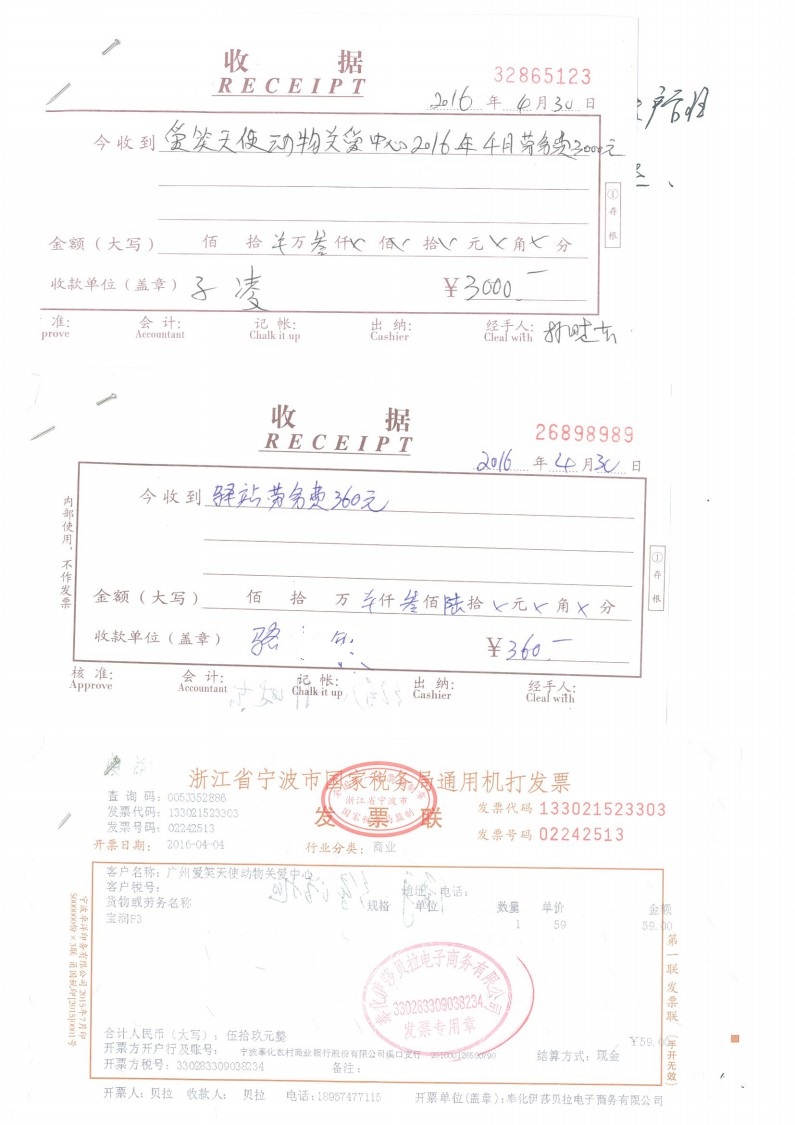 收 据
RECEIPT
32865123
2016 年 4 月 30 日
今收到 爱笑天使动物关爱中心2016年4月劳务费3000元
①存根
金额（大写） 佰 拾 万 叁仟 佰 拾 元 角 分
收款单位（盖章） 子凌 ￥3000.—
准: 会 计: 记 帐: 出 纳: 经手人:
prove Accountant Chalk it up Cashier Cleal with
收 据
RECEIPT
26898989
2016 年 4 月 30 日
内部使用，不作发票
今收到 驿站劳务费360元
①存根
金额（大写） 佰 拾 万 仟 叁佰 陆拾 元 角 分
收款单位（盖章） 骆 ￥360.—
核 准: 会 计: 记 帐: 出 纳: 经手人:
Approve Accountant Chalk it up Cashier Cleal with
浙江省宁波市国家税务局通用机打发票
发 票 联
查 询 码: 0053352886
发票代码: 133021523303
发票号码: 02242513
开票日期: 2016-04-04
行业分类: 商业
发票代码 133021523303
发票号码 02242513
客户名称: 广州爱笑天使动物关爱中心
客户税号: 地址、电话:
货物或劳务名称 规格 单位 数量 单价 金额
宝润P3 1 59 59.00
奉化伊莎贝拉电子商务有限公司
330283309038234
发票专用章
第一联 发票联
合计人民币（大写）: 伍拾玖元整 ￥59.00
开票方开户行及账号: 宁波奉化农村商业银行股份有限公司溪口支行
结算方式: 现金
开票方税号: 330283309038234 备注:
开票人: 贝拉 收款人: 贝拉 电话:18957477115 开票单位(盖章):奉化伊莎贝拉电子商务有限公司